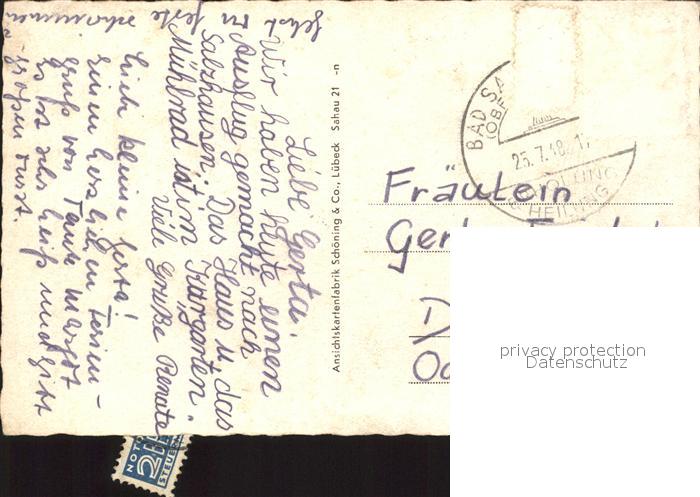 Liebe Gerta!
Wir haben heute einen
Ausflug gemacht nach
Salzhausen. Das Haus u. das
Mühlrad ist im Kurgarten.
Viele Grüße Renate
Liebe kleine Gerta!
Einen herzlichen Ferien-
gruß von Tante Margot
Es ist sehr heiß und gibt
großen Durst.
Ansichtskartenfabrik Schöning & Co., Lübeck Sahau 21 -n
BAD SA
(OBE
25.7.48.-1
HEILUNG
Fräulein
Gert
privacy protection
Datenschutz
NOTO
2
STEUER